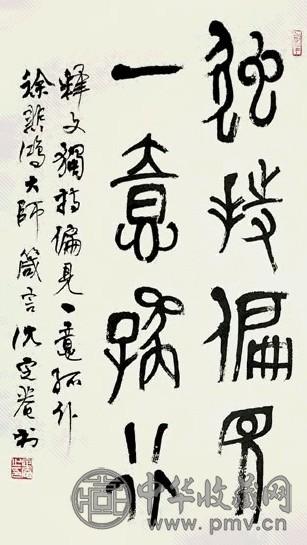 獨持偏見
一意孤行
释文獨持偏見一意孤行
徐悲鴻大師箴言沈定菴书
中华收藏网
www.pmv.cn